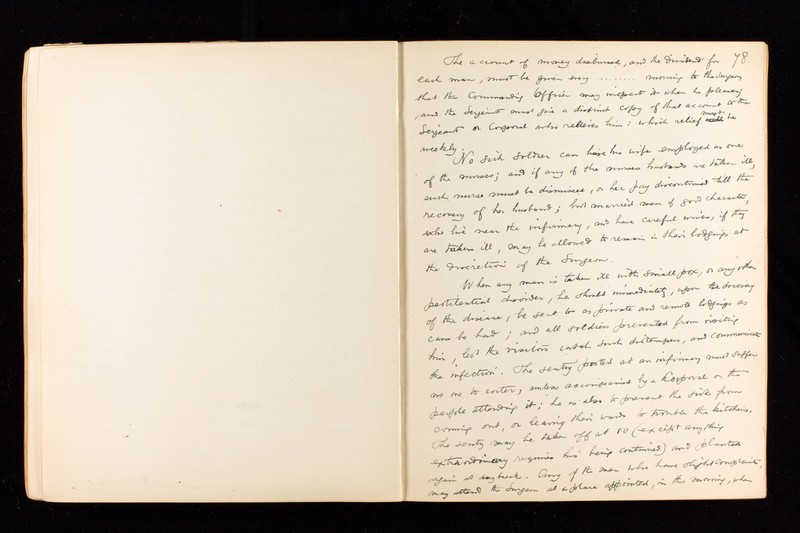 78
The account of money disbursed, and the dividend for
each man, must be given every ......... morning to the Surgeon
that the Commanding Officer may inspect it when he pleases;
and the Serjeant must give a distinct copy of that account to the
Serjeant or Corporal who relieves him: which relief must be
weekly.
No sick soldier can have his wife employed as one
of the nurses; and if any of the nurses husbands are taken ill,
such nurse must be dismissed, or her pay discontinued till the
recovery of her husband; but married men of good character,
who live near the infirmary, and have careful wives, if they
are taken ill, may be allowed to remain in their lodgings at
the discretion of the Surgeon.
When any man is taken ill with small pox, or any other
pestilential disorder, he should immediately, upon the discovery
of the disease, be sent to as private and remote lodgings as
can be had; and all soldiers prevented from visiting
him, lest the visitors catch such distempers, and communicate
the infection. The sentry posted at an infirmary must suffer
no one to enter, unless accompanied by a Corporal or the
people attending it; he is also to prevent the sick from
coming out, or leaving their wards to trouble the kitchens.
The sentry may be taken off at 10 (except anything
extraordinary requires his being continued) and planted
again at daybreak. Any of the men who have slight complaints,
may attend the Surgeon at a place appointed, in the morning, when